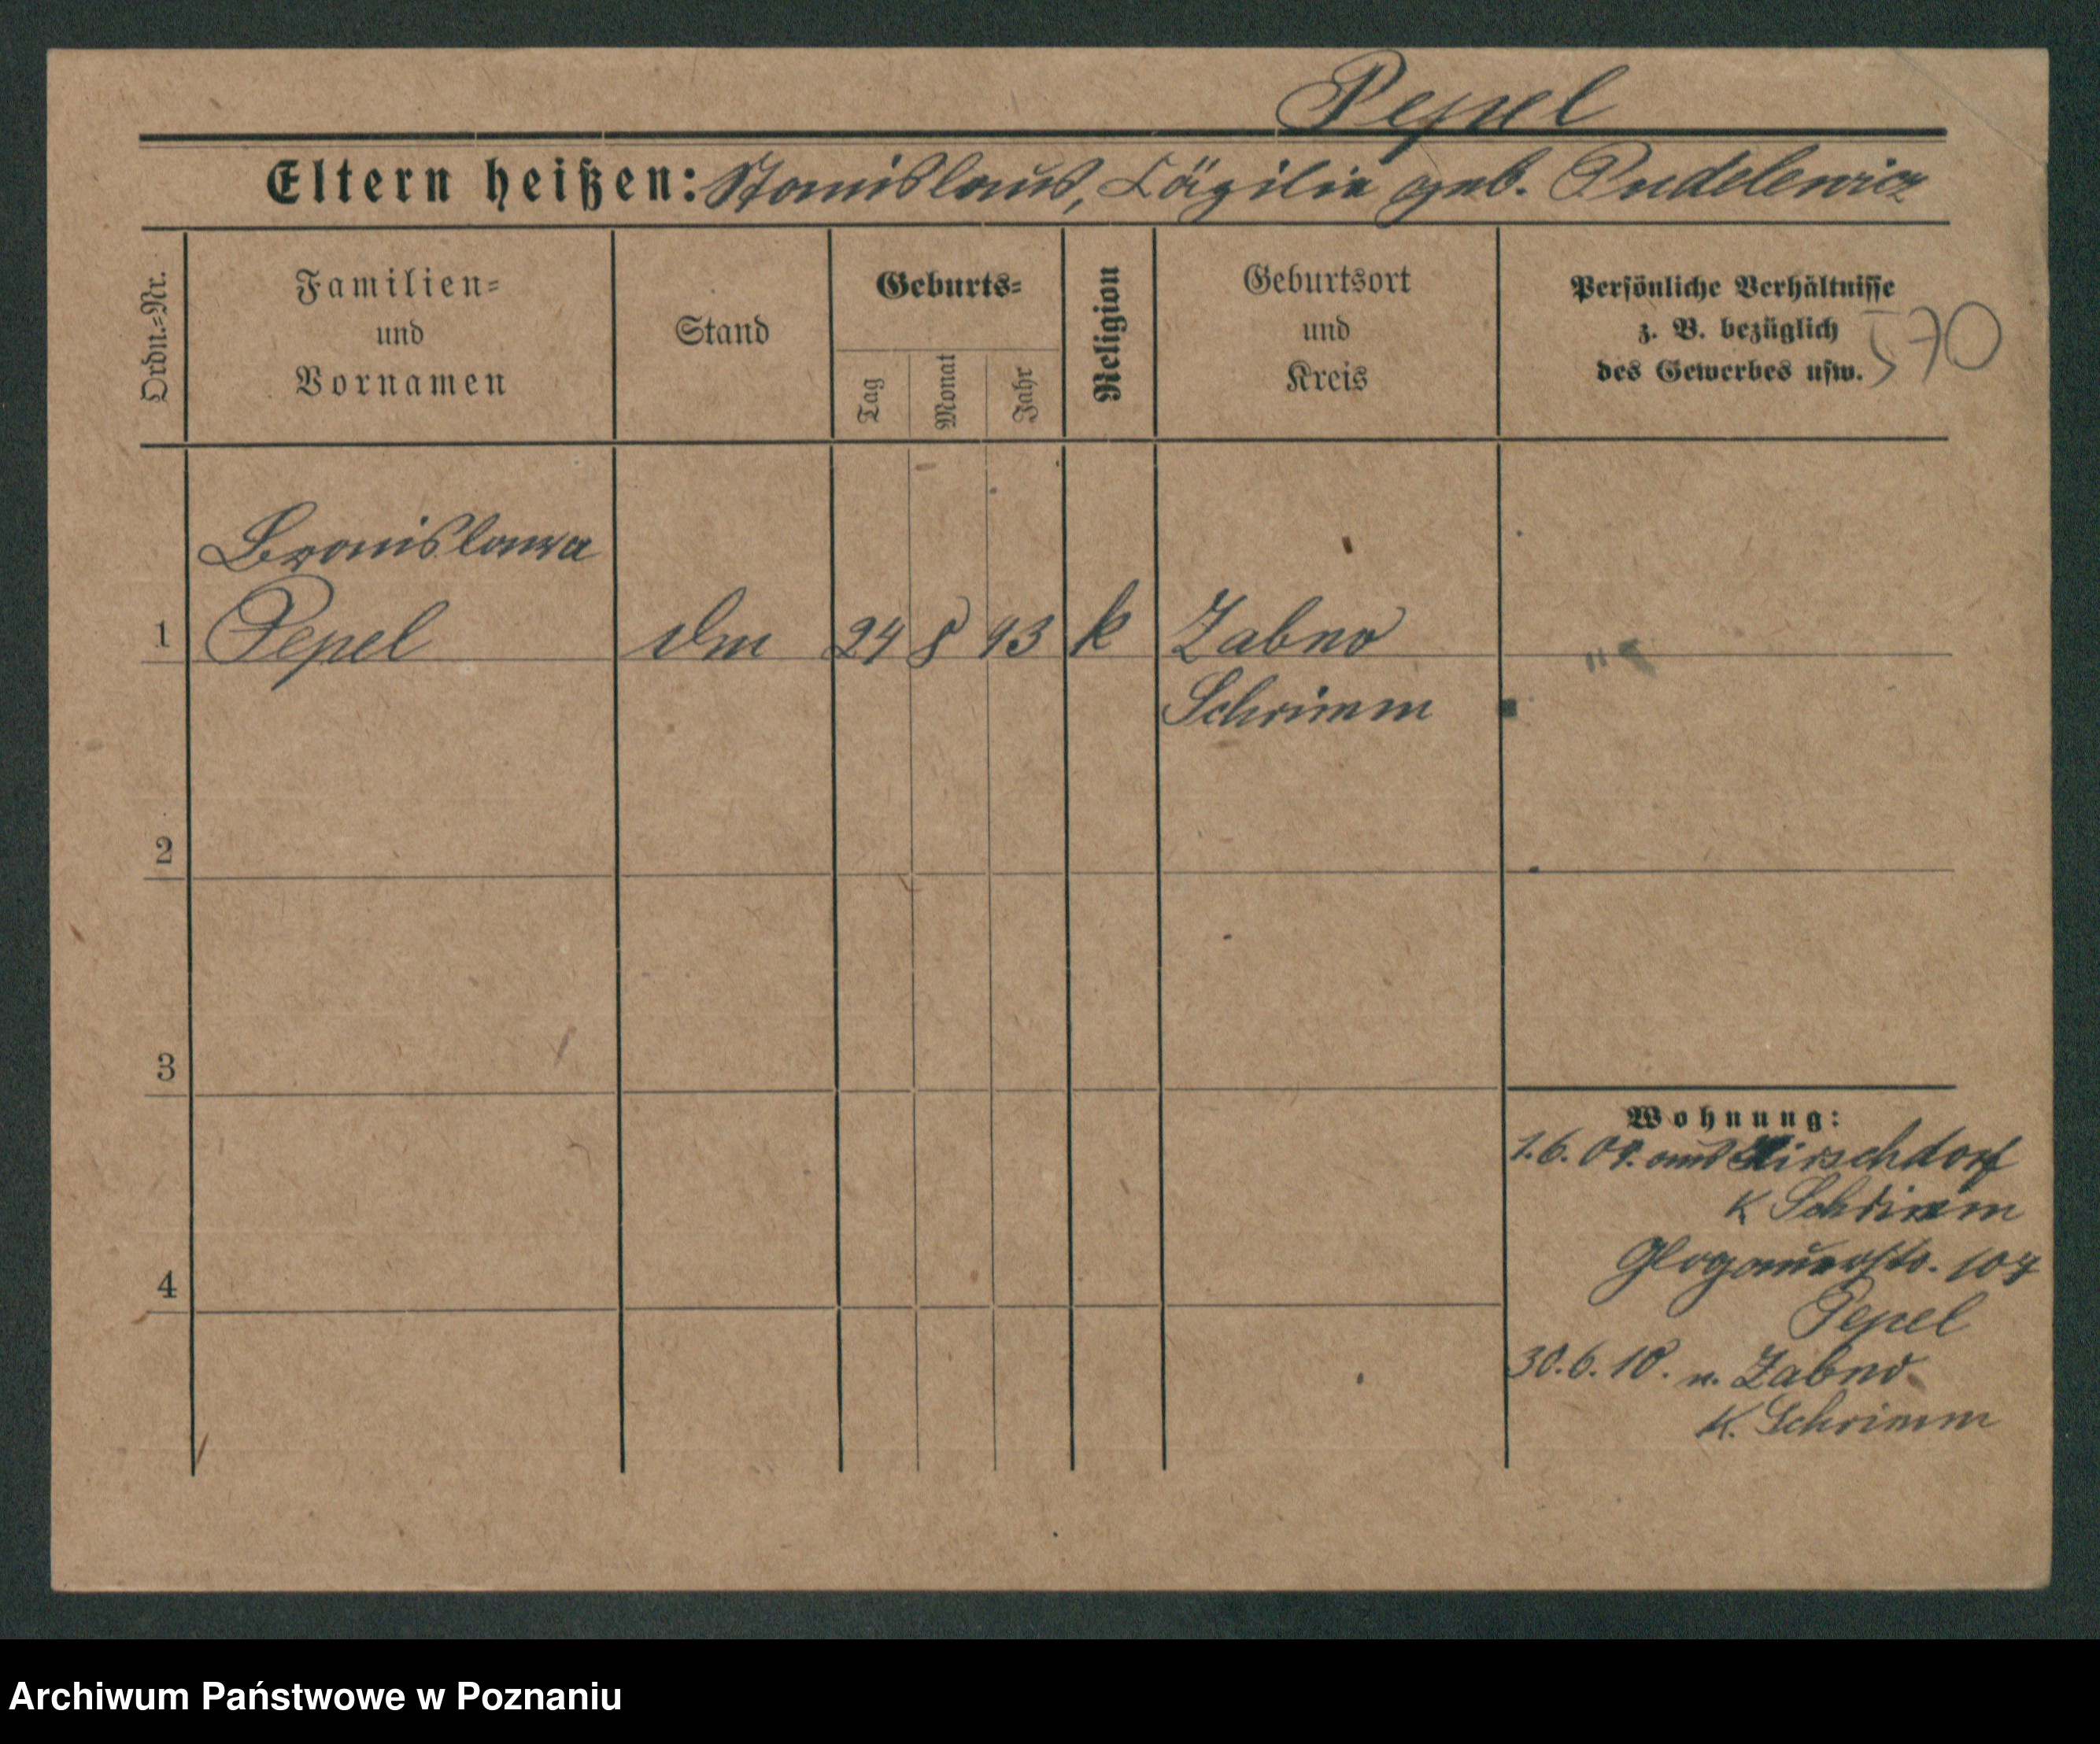 Pepel
Eltern heißen: Stanislaus, Cäzilie geb. Pudelewicz
Ordn.=Nr.
Familien=
und
Vornamen
Stand
Geburts=
Tag
Monat
Jahr
Religion
Geburtsort
und
Kreis
Persönliche Verhältnisse
z. B. bezüglich
des Gewerbes usw.
570
Bronislawa
1 Pepel Dm 24 8 93 k Zabno
Schrimm
2
3
4
Wohnung:
1.6.09. aus Hirschdorf
K Schrimm
Glogauerstr. 107
Pepel
30.6.10. n. Zabno
K. Schrimm
Archiwum Państwowe w Poznaniu